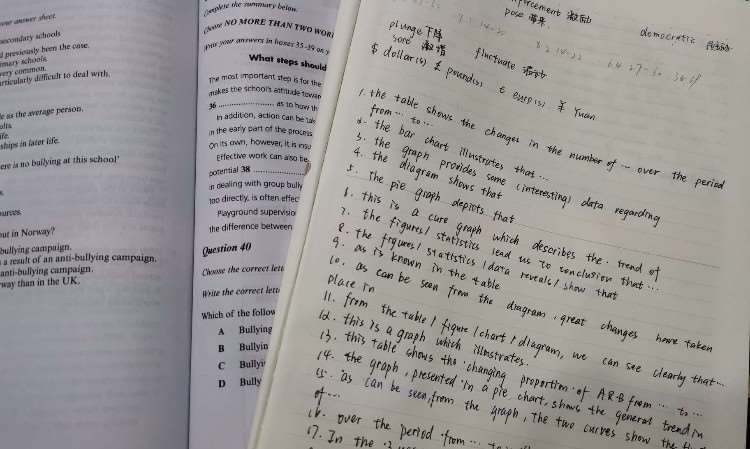 your answer sheet.
secondary schools
d previously been the case.
imary schools.
very common.
articularly difficult to deal with.
le as the average person.
ults.
ife.
ships in later life.
ere is no bullying at this school'
s.
ources.
out in Norway?
bullying campaign.
s a result of an anti-bullying campaign.
anti-bullying campaign.
way than in the UK.
Complete the summary below.
Choose NO MORE THAN TWO WOR
Write your answers in boxes 35-39 on y
What steps should
The most important step is for the
makes the school's attitude towar
36 .................... as to how th
In addition, action can be tak
in the early part of the process
On its own, however, it is insu
Effective work can also be
potential 38 ....................
in dealing with group bully
too directly, is often effec
Playground supervisio
the difference between
Question 40
Choose the correct lett
Write the correct lett
Which of the follow
A Bullying
B Bullyin
C Bullyi
D Bully
forcement 激励
pose 带来
democratic
plunge 下降
soar 激增
fluctuate 波动
$ dollar(s) £ pound(s) € euro(s) ¥ Yuan
1. the table shows the changes in the number of ... over the period
from ... to ...
2. the bar chart illustrates that ...
3. the graph provides some (interesting) data regarding
4. the diagram shows that
5. The pie graph depicts that
6. this is a cure graph which describes the trend of
7. the figures/ statistics lead us to conclusion that ...
8. the figures/ statistics/data reveals/ show that
9. as is known in the table
10. as can be seen from the diagram, great changes have taken
place in
11. from the table/ figure/chart/diagram, we can see clearly that...
12. this is a graph which illustrates.
13. this table shows the changing proportion of A&B from ... to ...
14. the graph, presented in a pie chart, shows the general trend in
15. as can be seen from the graph, the two curves show the
of ...
16. over the period from ... to
17. In the